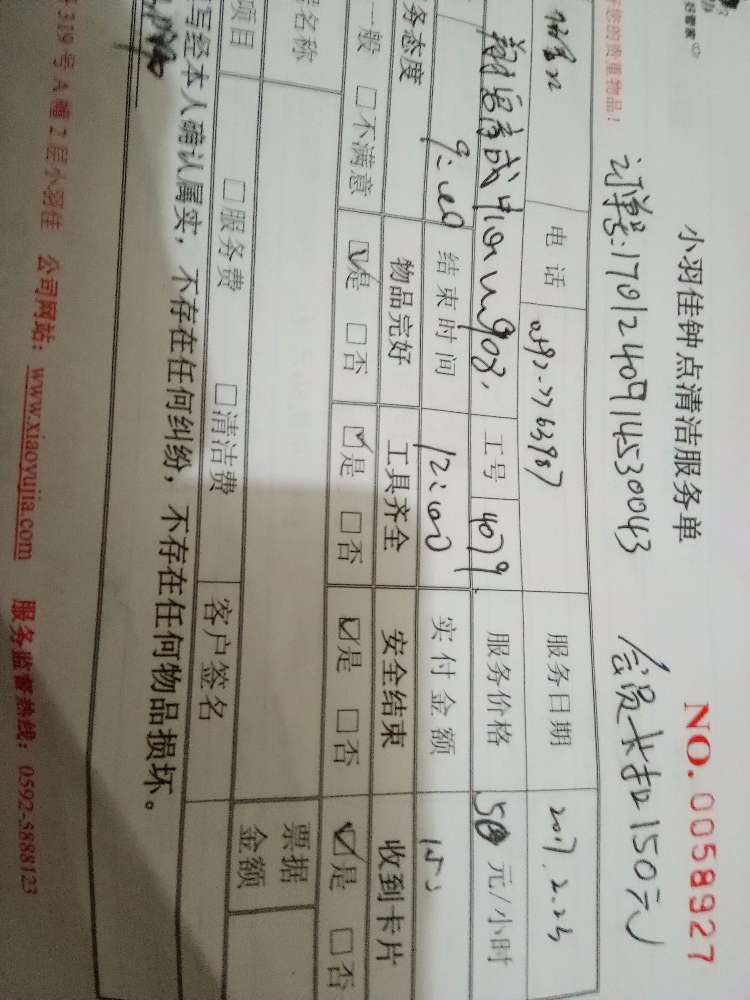 好管家
您的贵重物品!
小羽佳钟点清洁服务单
NO. 0058927
订单号:1701240914530043
会员卡扣150元
电话
服务日期 2017.2.23
工号 4079
服务价格 50 元/小时
9:00
结束时间 12:00
实付金额 150
务态度 物品完好 工具齐全 安全结束 收到卡片
一般 □不满意 ☑是 □否 ☑是 □否 ☑是 □否 ☑是 □否
名称
票据金额
项目 □服务费 □清洁费
客户签名
写经本人确认属实,不存在任何纠纷,不存在任何物品损坏。
319号A幢2层小羽佳 公司网站:www.xiaoyujia.com 服务监督热线:0592-5888123